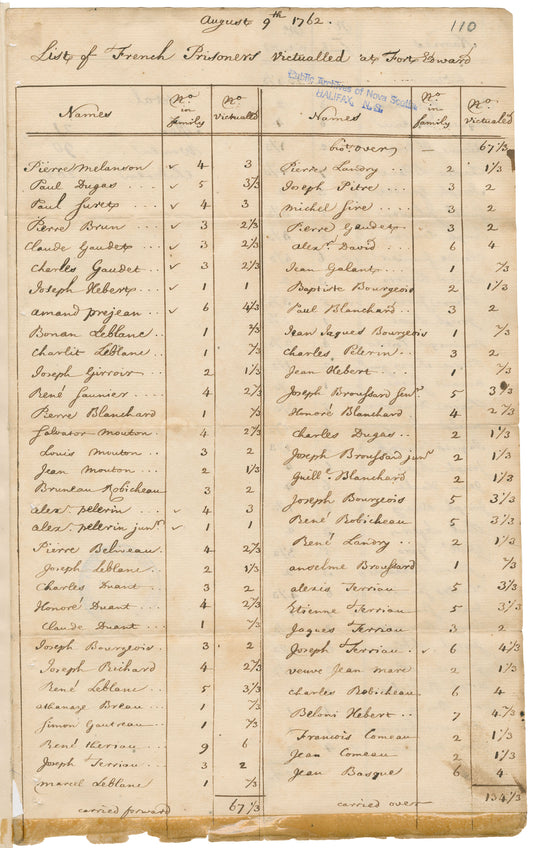 August 9th 1762.
110
List of French Prisoners Victualled at Fort Edward
Public Archives of Nova Scotia
HALIFAX, N.S.
Names
No in family
No Victualled
Pierre Melanson ✓ 4 3
Paul Dugas ✓ 5 3 1/3
Paul Surets ✓ 4 3
Pierre Brun ✓ 3 2 1/3
Claude Gaudets ✓ 3 2 1/3
Charles Gaudet ✓ 3 2 1/3
Joseph Heberts ✓ 1 1
amand prejean ✓ 6 4 1/3
Bonan Leblanc 1 2/3
Charlit Leblanc 1 2/3
Joseph Girroir 2 1 1/3
René Saunier 4 2 2/3
Pierre Blanchard 1 2/3
Salvator Mouton 4 2 2/3
Louis Mouton 3 2
Jean Mouton 2 1 1/3
Bruneau Robicheau 3 2
alexr pelerin ✓ 4 3
alexr pelerin junr ✓ 1 1
Pierre Beliveau 4 2 2/3
Joseph Leblanc 2 1 1/3
Charles Duant 3 2
Honoré Duant 4 2 2/3
Claude Duant 1 2/3
Joseph Bourgeois 3 2
Joseph Richard 4 2 2/3
René Leblanc 5 3 1/3
athanaze Breau 1 2/3
Simon Gautreau 1 2/3
René theriau 9 6
Joseph Terriau 3 2
marcel Leblanc 1 2/3
67 1/3
carried forward
Names
No in family
No Victualled
brot over 67 1/3
Pierre Landry 2 1 1/3
Joseph Pitre 3 2
michel Sire 3 2
Pierre Gaudet 3 2
alexr David 6 4
Jean Galant 1 2/3
Baptiste Bourgeois 2 1 1/3
Paul Blanchard 3 2
Jean Jaques Bourgeois 1 2/3
Charles Pelerin 3 2
Jean Hebert 1 2/3
Joseph Broussard Senr 5 3 1/3
Honoré Blanchard 4 2 2/3
Charles Dugas 2 1 1/3
Joseph Broussard junr 2 1 1/3
Guille Blanchard 2 1 1/3
Joseph Bourgeois 5 3 1/3
René Robicheau 5 3 1/3
René Landry 2 1 1/3
anselme Broussard 1 2/3
alexis Terriau 5 3 1/3
Etienne Terriau 5 3 1/3
Jaques Terriau 3 2
Joseph Terriau ✓ 6 4 1/3
veuve Jean marc 2 1 1/3
charles Robicheau 6 4
Beloni Hebert 7 4 2/3
Francois Comeau 2 1 1/3
Jean Comeau 2 1 1/3
Jean Basque 6 4
134 1/3
carried over